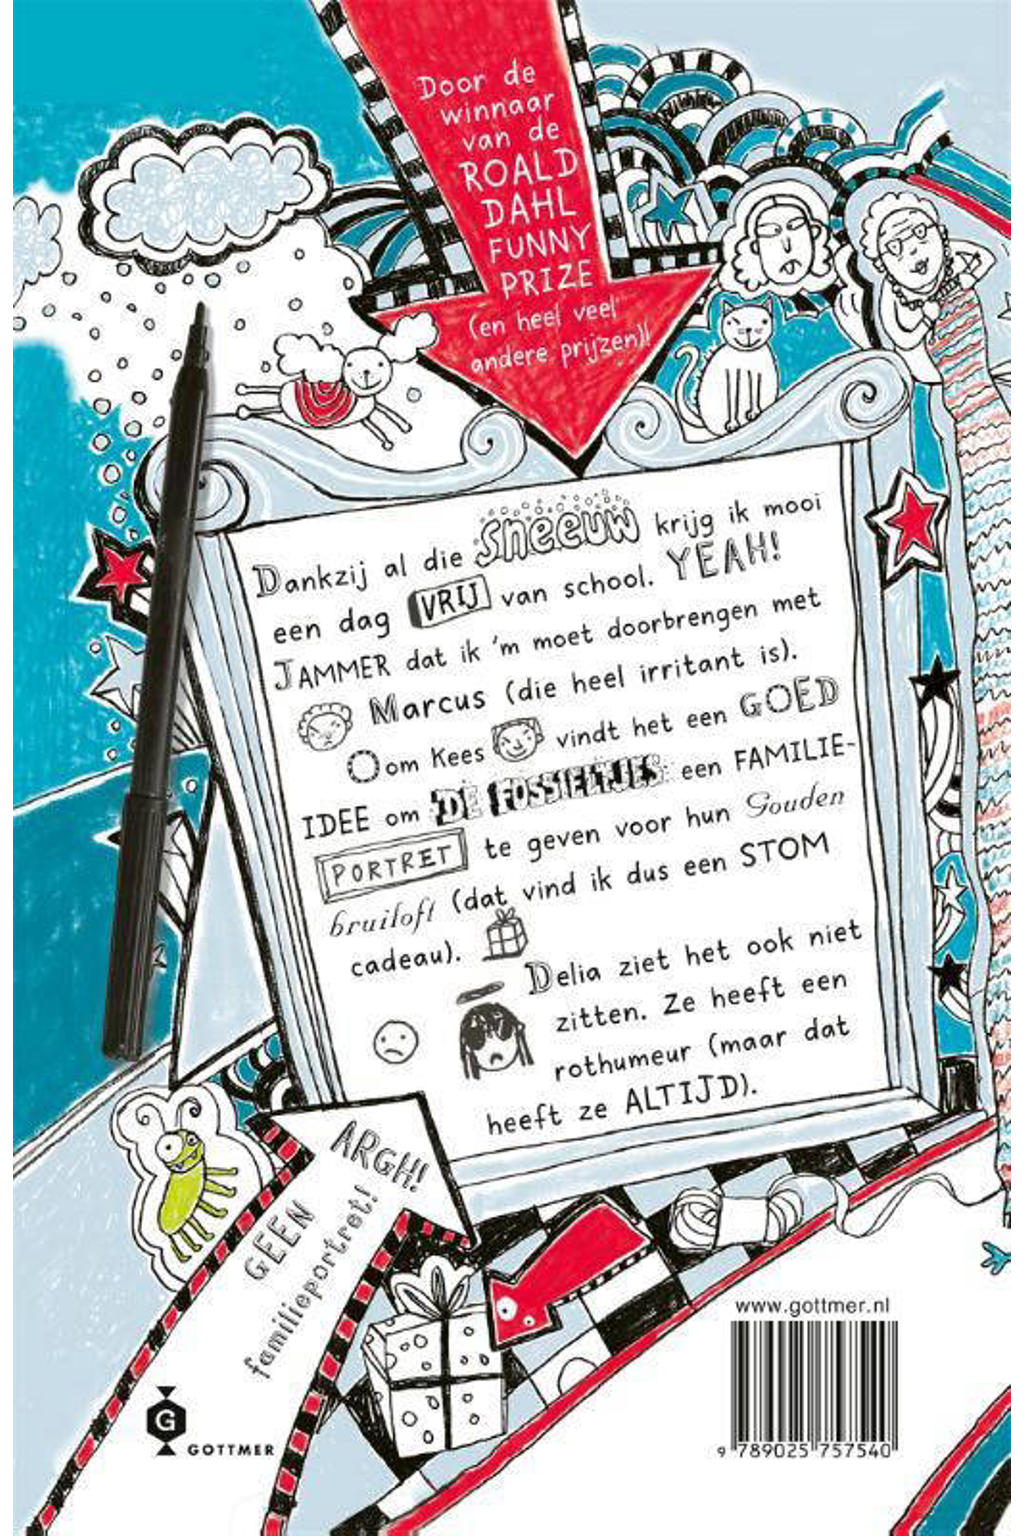 Door de
winnaar
van de
ROALD
DAHL
FUNNY
PRIZE
(en heel veel
andere prijzen)!
Dankzij al die sneeuw krijg ik mooi
een dag VRIJ van school. YEAH!
JAMMER dat ik 'm moet doorbrengen met
Marcus (die heel irritant is).
Oom Kees vindt het een GOED
IDEE om 'DE FOSSIELTJES een FAMILIE-
PORTRET te geven voor hun Gouden
bruiloft (dat vind ik dus een STOM
cadeau).
Delia ziet het ook niet
zitten. Ze heeft een
rothumeur (maar dat
heeft ze ALTIJD).
ARGH!
GEEN
familieportret!
G
GOTTMER
www.gottmer.nl
9 789025 757540